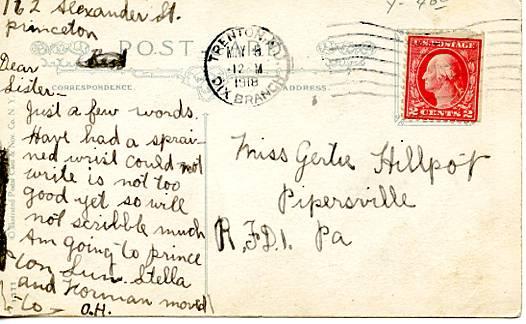 162 Alexander St.
Princeton
POST CARD
CORRESPONDENCE.
ADDRESS.
TRENTON, N.J.
12 M
1918
DIX BRANCH
U.S. POSTAGE
2 CENTS 2
Dear
Sister-
Just a few words.
Have had a sprai-
ned wrist could not
write is not too
good yet so will
not scribble much
Am going to prince
ton Sun. Stella
and Norman moved
to
O.H.
Miss Gertie Hillpot
Pipersville
R.F.D.1. Pa